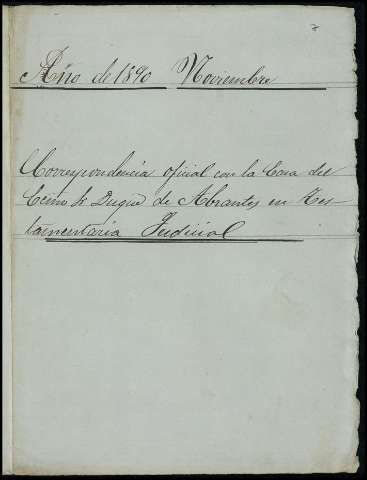 7
Año de 1890 Noviembre
Correspondencia oficial con la Casa del
Excmo Sr Duque de Abrantes en Tes-
tamentaria Judicial